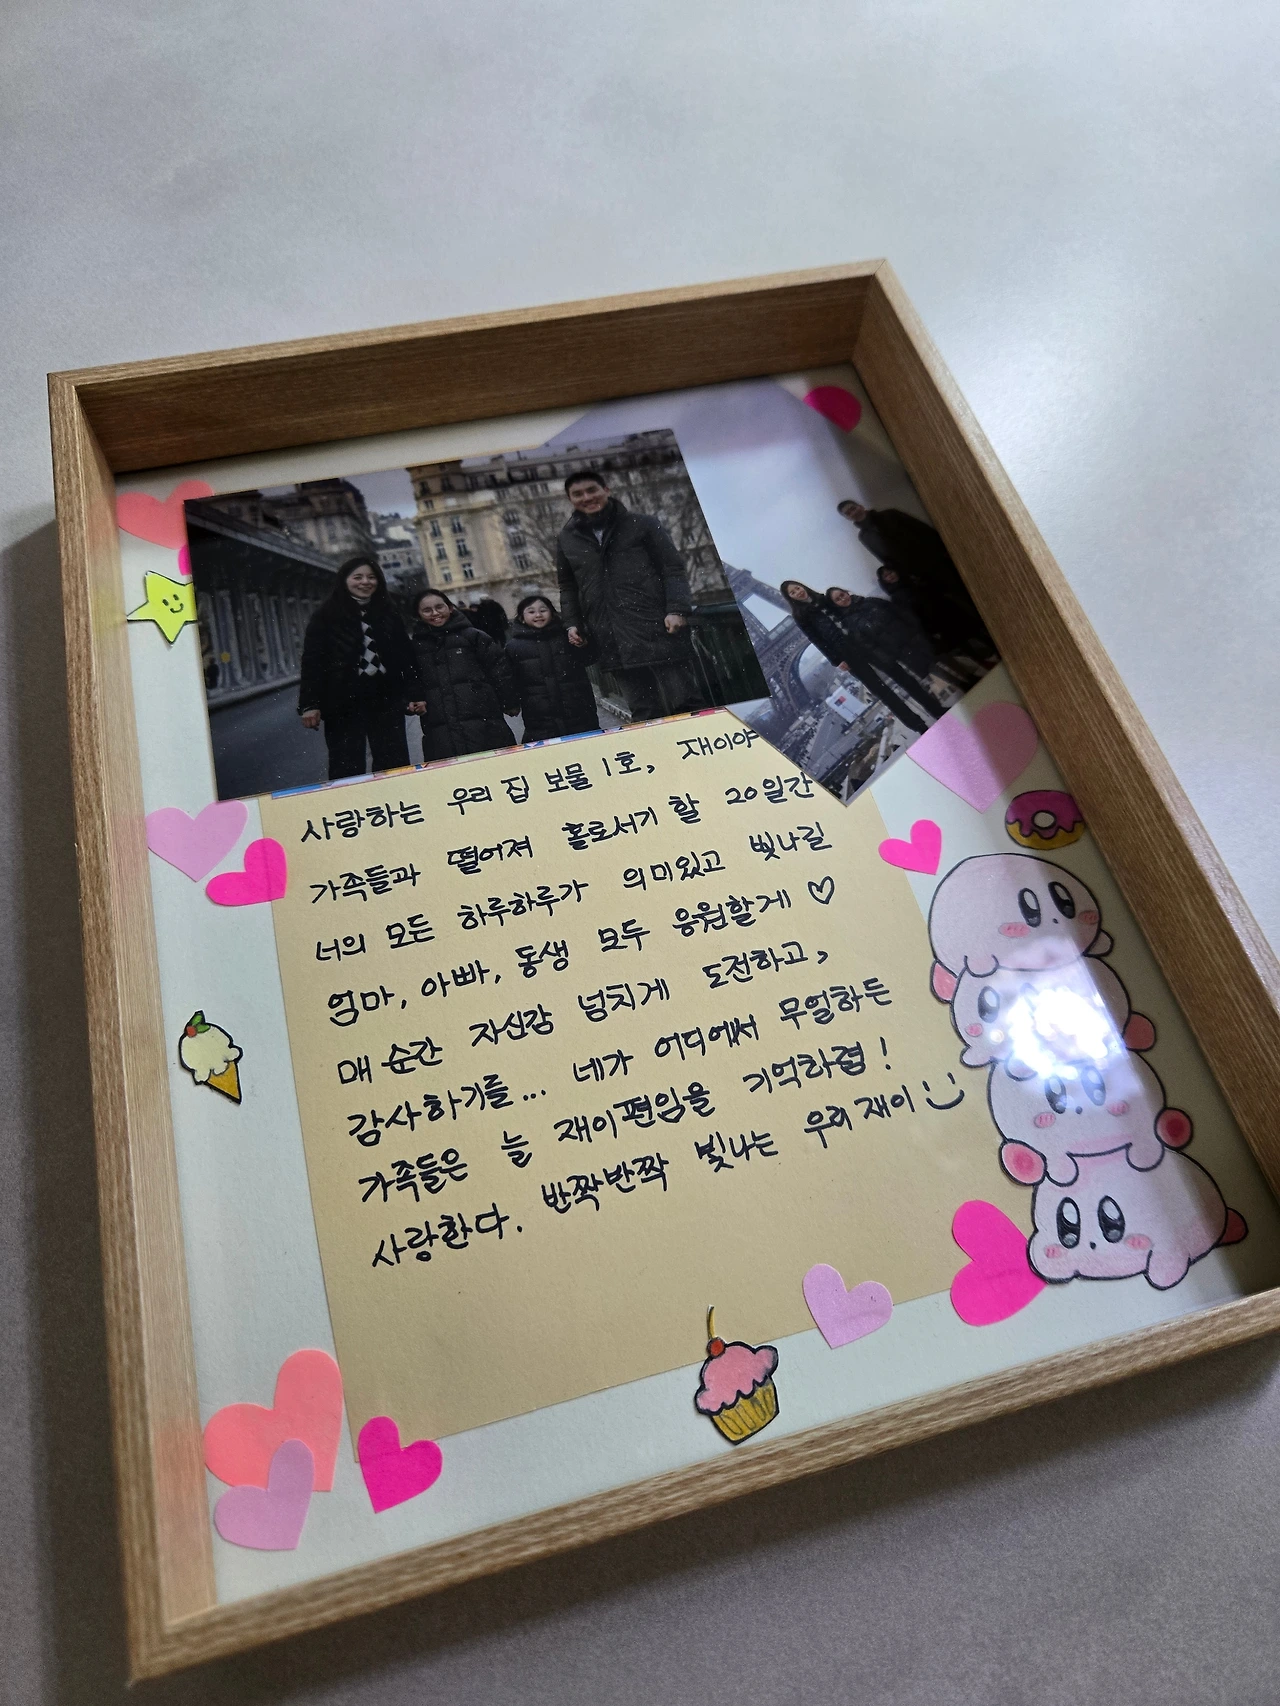 사랑하는 우리 집 보물 1호, 재이야
가족들과 떨어져 홀로서기 할 20일간
너의 모든 하루하루가 의미있고 빛나길
엄마, 아빠, 동생 모두 응원할게 ♡
매 순간 자신감 넘치게 도전하고,
감사하기를... 네가 어디에서 무얼하든
가족들은 늘 재이편임을 기억하렴!
사랑한다. 반짝반짝 빛나는 우리 재이 :)